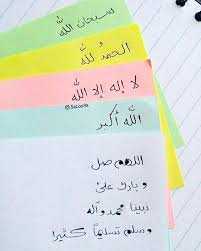 سبحان الله
الحمدُ لله
لا إله إلا الله
@SaLoorks
الله أكبر
اللهم صل
وبارك على
نبينا محمد وآله
وسلم تسليماً كثيرا